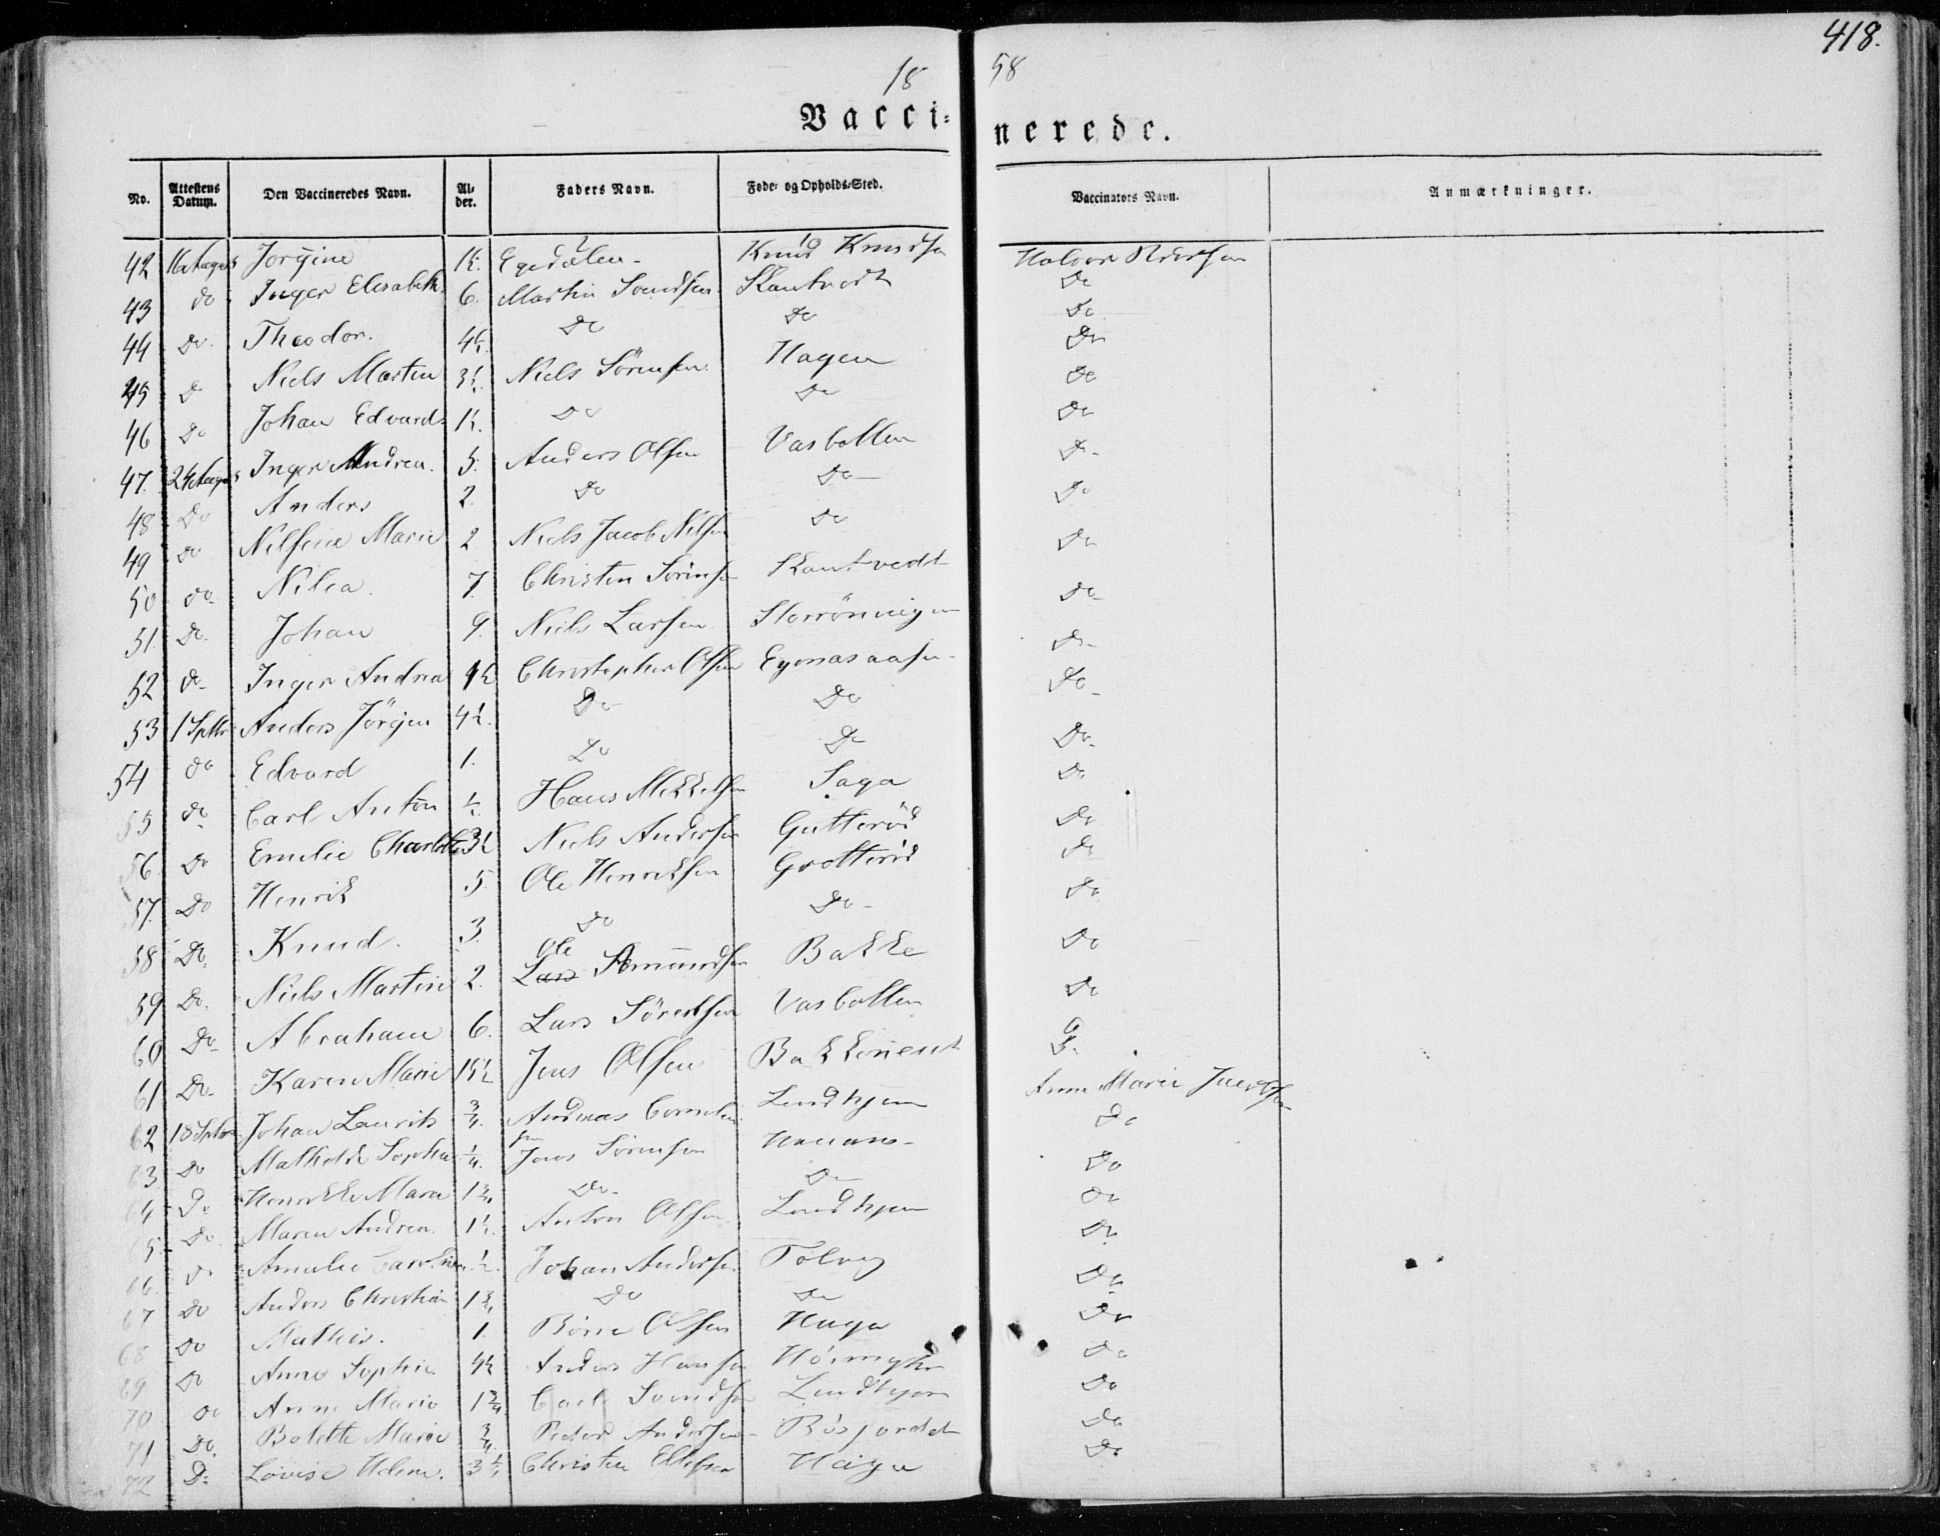 418.
18 58
Vacci= nerede.
No. Attestens Datum. Den Vaccineredes Navn. Al- der. Faders Navn. Føde- og Opholds-Sted. Vaccinators Navn. Anmærkninger.
42 16 August Jorgine 1½. Egedalen - Knud Knudsen Halvor
43 do Inger Elisabeth 6. Martin Svendsen Skantvedt Do
44 Do Theodor. 4½. Do Do Do
45 D Niels Martin 3½. Niels Sörensen Hagen Do
46 Do Johan Edvard 1½. Do Do Do
47. 24 August Inger Andrea. 5. Anders Olsen Vasbotten Do
48 Do Anders 2. Do Do Do
49 Do Nilsine Marie 2 Niels Jacob Nilsen Do Do
50 Do Nilea. 7. Christen Sörensen Skantvedt Do
51. Do Johan 9. Niels Larsen Storröningen Do
52 Do Inger Andrea 9½ Christopher Olsen Do
53 1 Sptbr Anders Jörgen 4½. Do Do Do
54 Do Edvard 1. Do Do Do
55 Do Carl Anton ½. Hans Mikkelsen Saga Do
56. Do Emelie Charlotte 3½ Niels Andersen Gutteröd Do
57. Do Henrik 5. Ole Henriksen Grotteröd Do
58 Do Knud. 3. Do Do Do
59 Do Niels Martin 2. Ole Lars Amundsen Bakke Do
60 Do Abraham 6. Lars Vasbotten Do
61 Do Karen Marie 15½ Jens Olsen
62 18 Sptbr Johan Laurits ¾. Andreas Cornelius sen Lindhjem Anne Marie
63 Do Mathilde Sophie ¼. Jens Sörensen Do
64 Do Henrikke Maria 1¾ Do Do Do
65 Do Maren Andrea. 1½. Anton Olsen Lindhjem Do
66. Do Amalie Caroline ½. Johan Andersen Do
67 Do Anders Christian 1¾ Do Do Do
68 Do Mathis. 1. Börre Olsen Haga Do
69 Do Anne Sophie 4½ Anders Hansen Do
70 Do Anne Marie 1¾ Carl Svendsen Lindhjem Do
71 Do Bolette Marie ¾ Peder Andersen Do
72 Do Lovise Helene. 3½ Christen Ellefsen Haga Do